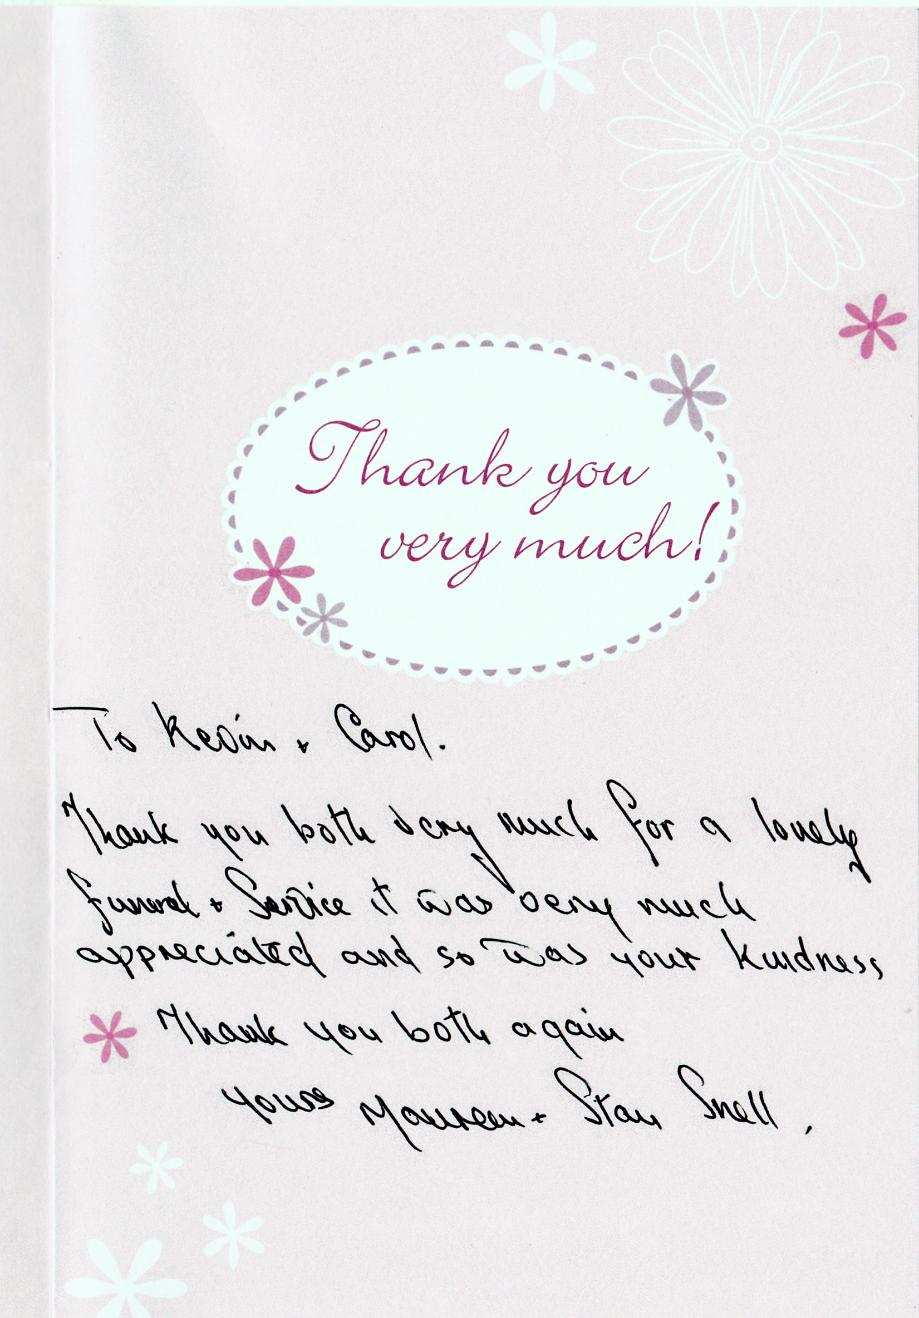 Thank you
very much!
To Kevin + Carol.
Thank you both very much for a lovely
funeral + Service it was very much
appreciated and so was your kindness
Thank you both again
yours Maureen + Stan Snell.